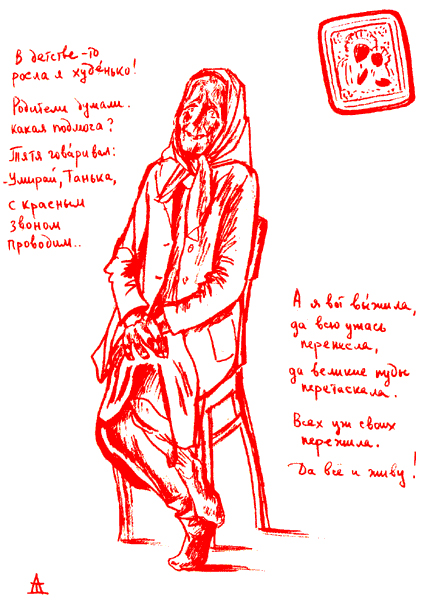 В детстве-то
росла я худе́нько!
Родители думали.
какая подмога?
Тятя гова́ривал:
-Умирай, Танька,
с красным
звоном
проводим..
А я во́т вы́жила,
да всю ужась
перенесла,
да великие пуды
перетаскала.
Всех уж своих
пережила.
Да всё и живу!